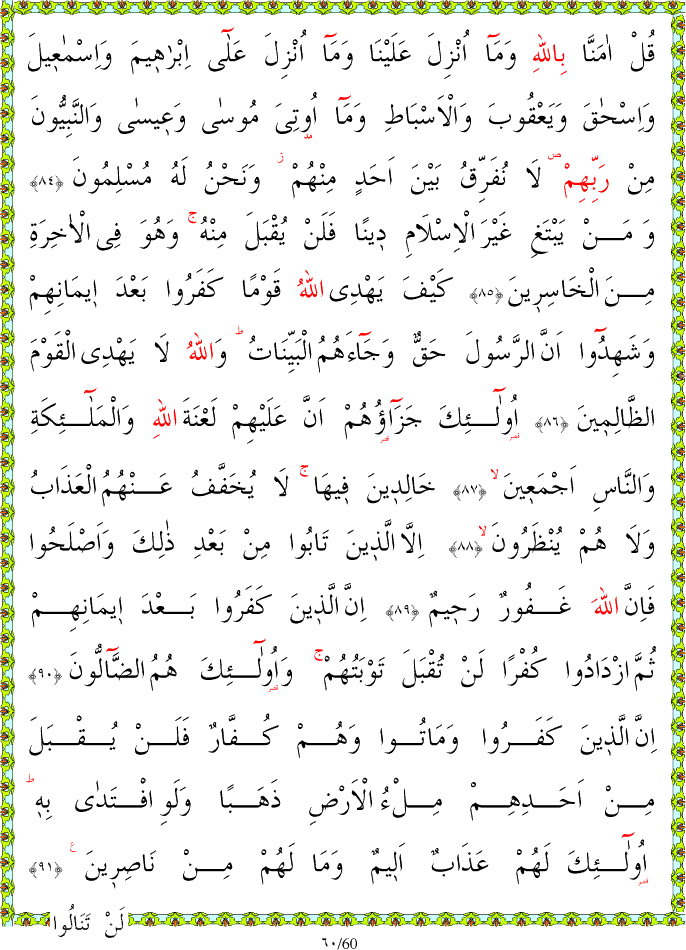 قُلْ اٰمَنَّا بِاللّٰهِ وَمَٓا اُنْزِلَ عَلَيْنَا وَمَٓا اُنْزِلَ عَلٰٓى اِبْرٰه۪يمَ وَاِسْمٰع۪يلَ
وَاِسْحٰقَ وَيَعْقُوبَ وَالْاَسْبَاطِ وَمَٓا اُو۫تِيَ مُوسٰى وَع۪يسٰى وَالنَّبِيُّونَ
مِنْ رَبِّهِمْۖ لَا نُفَرِّقُ بَيْنَ اَحَدٍ مِنْهُمْۘ وَنَحْنُ لَهُ مُسْلِمُونَ ﴿٨٤﴾
وَ مَــنْ يَبْتَغِ غَيْرَ الْاِسْلَامِ د۪ينًا فَلَنْ يُقْبَلَ مِنْهُۚ وَهُوَ فِي الْاٰخِرَةِ
مِــنَ الْخَاسِر۪ينَ ﴿٨٥﴾ كَيْفَ يَهْدِي اللّٰهُ قَوْمًا كَفَرُوا بَعْدَ ا۪يمَانِهِمْ
وَشَهِدُٓوا اَنَّ الرَّسُولَ حَقٌّ وَجَٓاءَهُمُ الْبَيِّنَاتُۜ وَاللّٰهُ لَا يَهْدِي الْقَوْمَ
الظَّالِم۪ينَ ﴿٨٦﴾ اُو۬لٰٓــئِكَ جَزَٓاؤُ۬هُمْ اَنَّ عَلَيْهِمْ لَعْنَةَ اللّٰهِ وَالْمَلٰٓــئِكَةِ
وَالنَّاسِ اَجْمَع۪ينَۙ ﴿٨٧﴾ خَالِد۪ينَ ف۪يهَاۚ لَا يُخَفَّفُ عَــنْهُمُ الْعَذَابُ
وَلَا هُمْ يُنْظَرُونَۙ ﴿٨٨﴾ اِلَّا الَّذ۪ينَ تَابُوا مِنْ بَعْدِ ذٰلِكَ وَاَصْلَحُوا
فَاِنَّ اللّٰهَ غَــفُورٌ رَح۪يمٌ ﴿٨٩﴾ اِنَّ الَّذ۪ينَ كَفَرُوا بَــعْدَ ا۪يمَانِهِــمْ
ثُمَّ ازْدَادُوا كُفْرًا لَنْ تُقْبَلَ تَوْبَتُهُمْۚ وَاُو۬لٰٓــئِكَ هُمُ الضَّٓالُّونَ ﴿٩٠﴾
اِنَّ الَّذ۪ينَ كَفَــرُوا وَمَاتُــوا وَهُــمْ كُــفَّارٌ فَلَــنْ يُــقْــبَلَ
مِــنْ اَحَــدِهِــمْ مِــلْءُ الْاَرْضِ ذَهَــبًا وَلَوِ افْــتَدٰى بِه۪ۜ
اُو۬لٰٓــئِكَ لَهُمْ عَذَابٌ اَل۪يمٌ وَمَا لَهُمْ مِــنْ نَاصِر۪ينَ۟ ﴿٩١﴾
لَنْ تَنَالُوا
٦٠/60